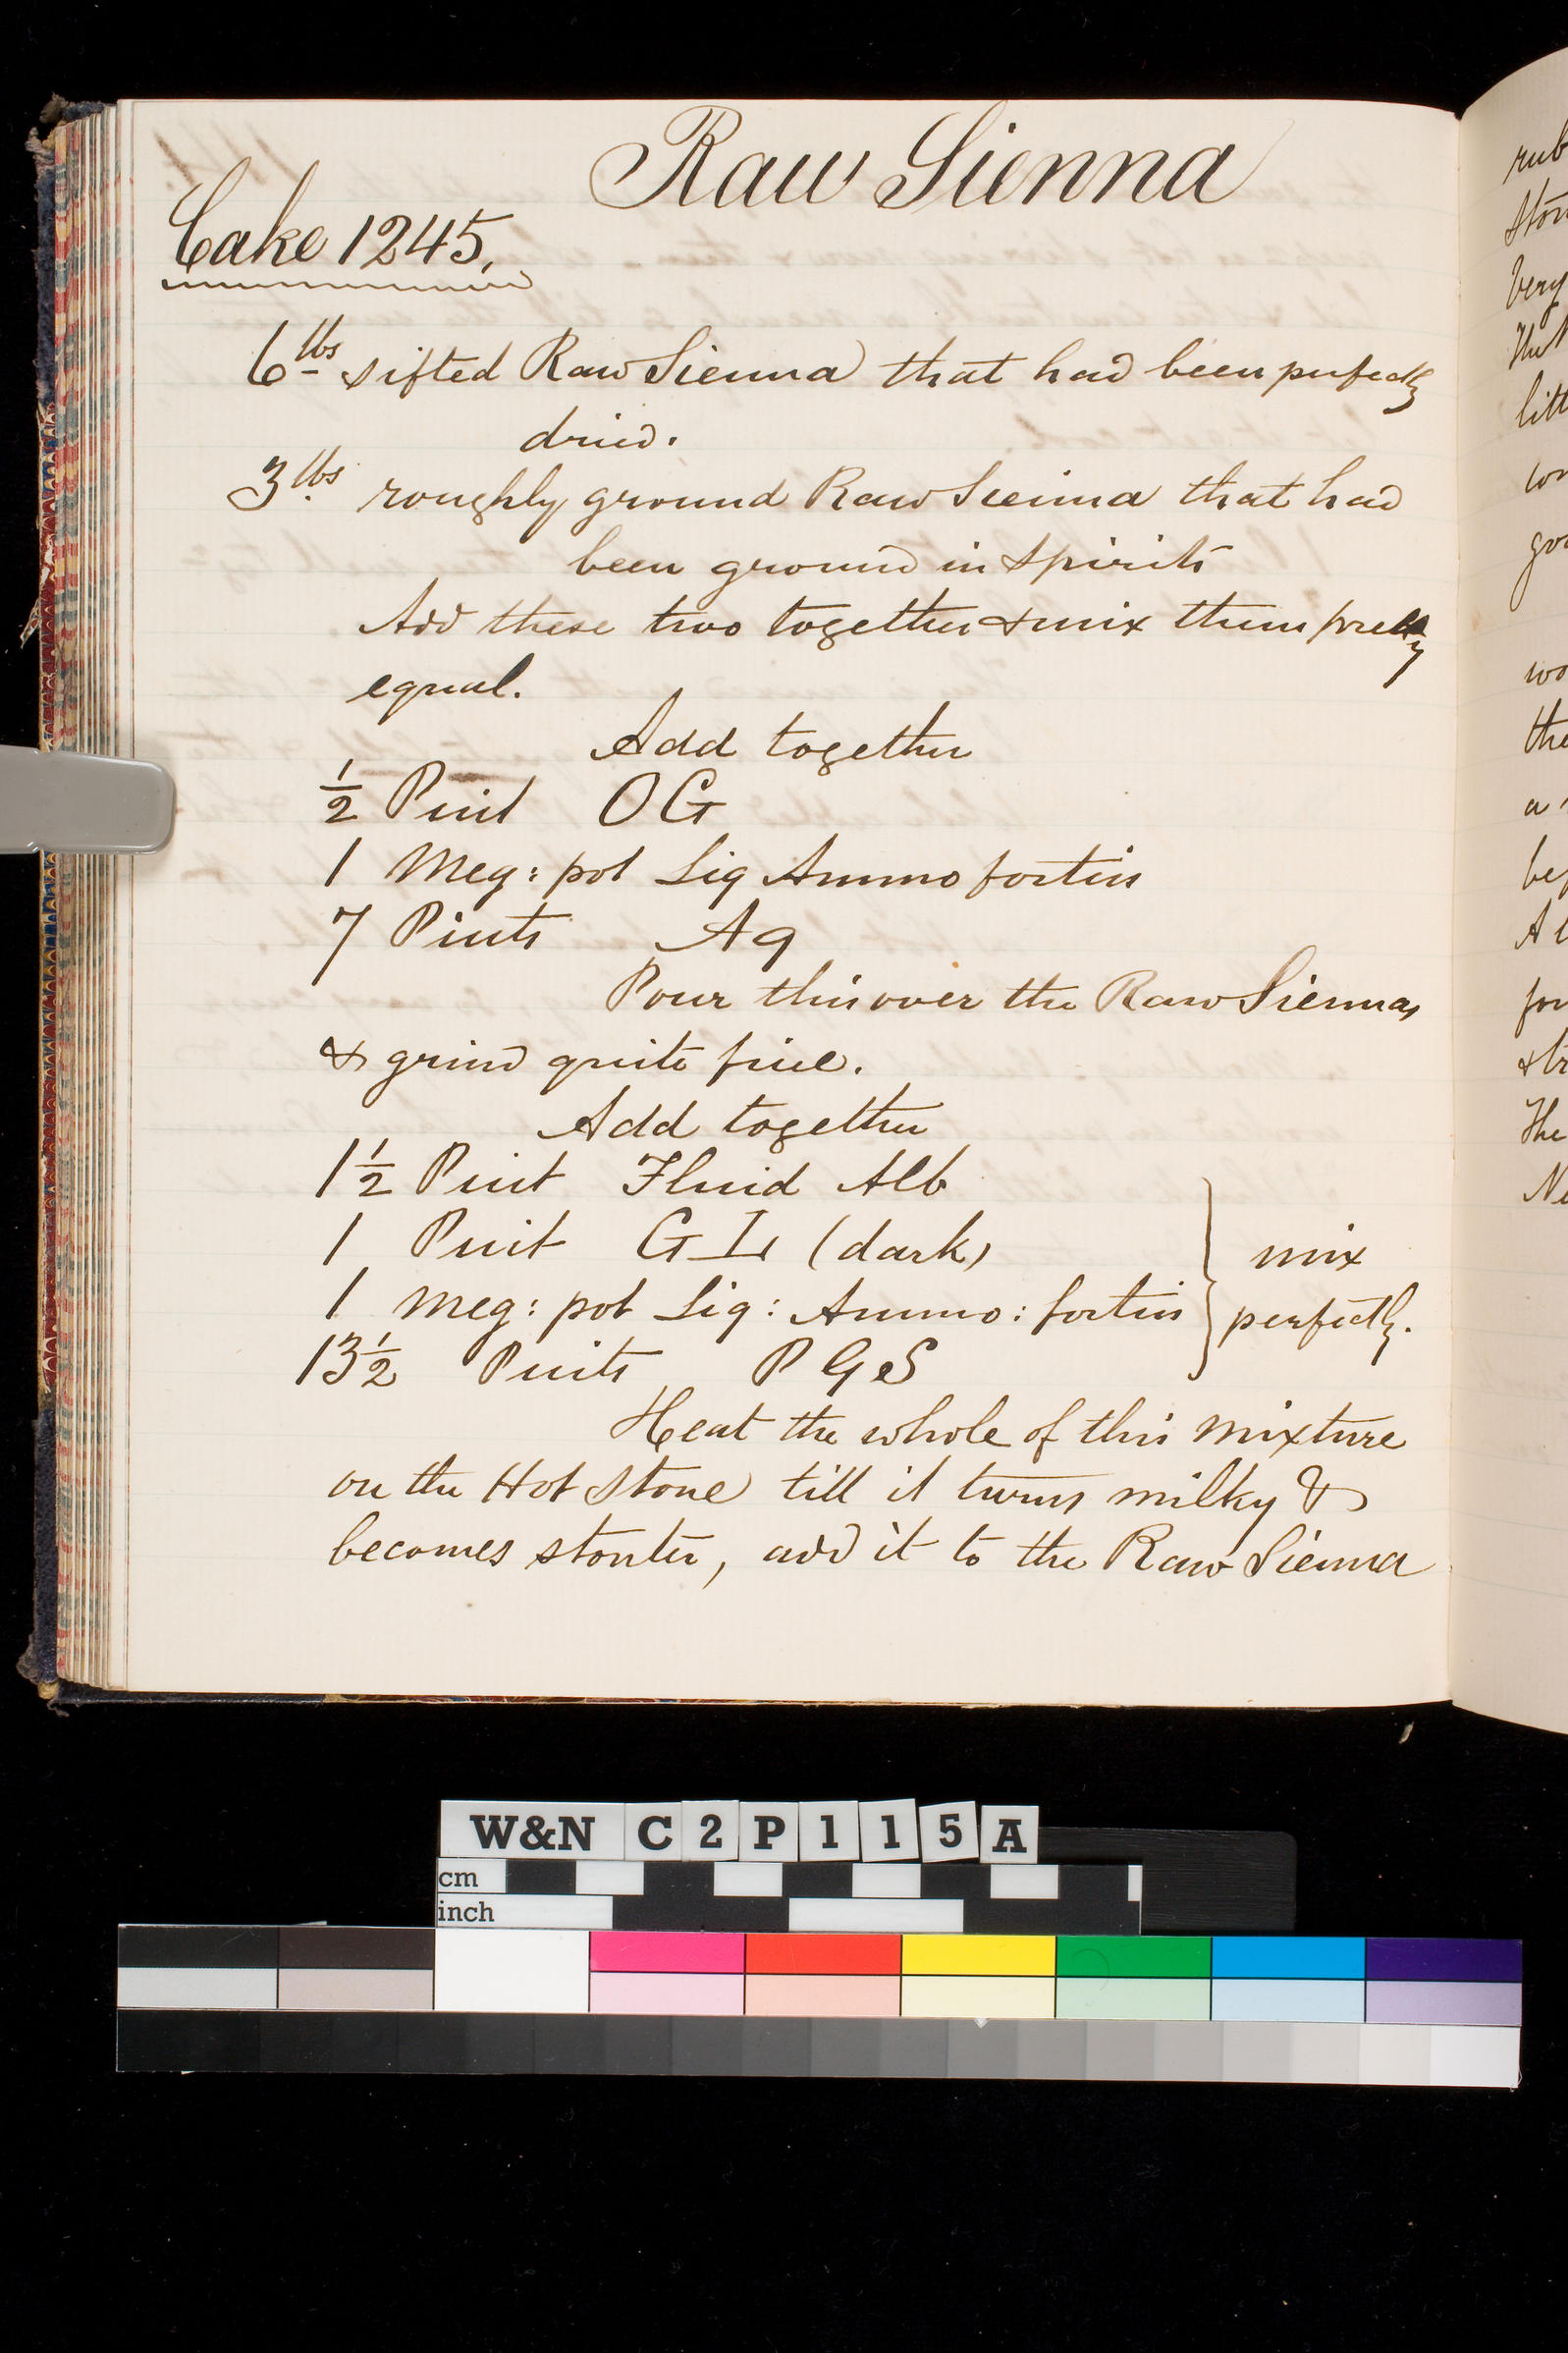 Raw Sienna
Cake 1245.
6 lbs sifted Raw Sienna that had been perfectly
dried.
3 lbs roughly ground Raw Sienna that had
been ground in spirits
Add these two together & mix them pretty
equal.
Add together
1/2 Pint OG
1 Meg: pot Liq Ammo fortiss
7 Pints Aq
Pour this over the Raw Siennas
& grind quite fine.
Add together
1 1/2 Pint Fluid Alb
1 Pint G L (dark)
1 Meg: pot Liq: Ammo: fortiss
13 1/2 Pints P G S
} mix
perfectly.
Heat the whole of this mixture
on the Hot Stone till it turns milky &
becomes stouter, add it to the Raw Sienna
rub
Very
the
a
The
W&N C2P115A
cm
inch